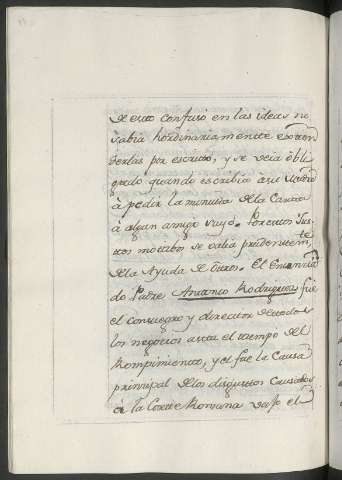 de esto confuso en las ideas no
sabia hordinariamente exten
derlas por escrito, y se veia obli
gado quando escribia a su
à pedir la minuta de la Carta
à algun amigo suyo. Por estos Jus
tos motibos se valia prudentem.te
de la Ayuda de otros. El
do Padre Antonio Rodriguez fue
el consuegro y director de todos
los negocios asta el tiempo del
Rompimiento, y el fue la Causa
prinsipal de los disgustos Causados
à la Corte Romana vajo el